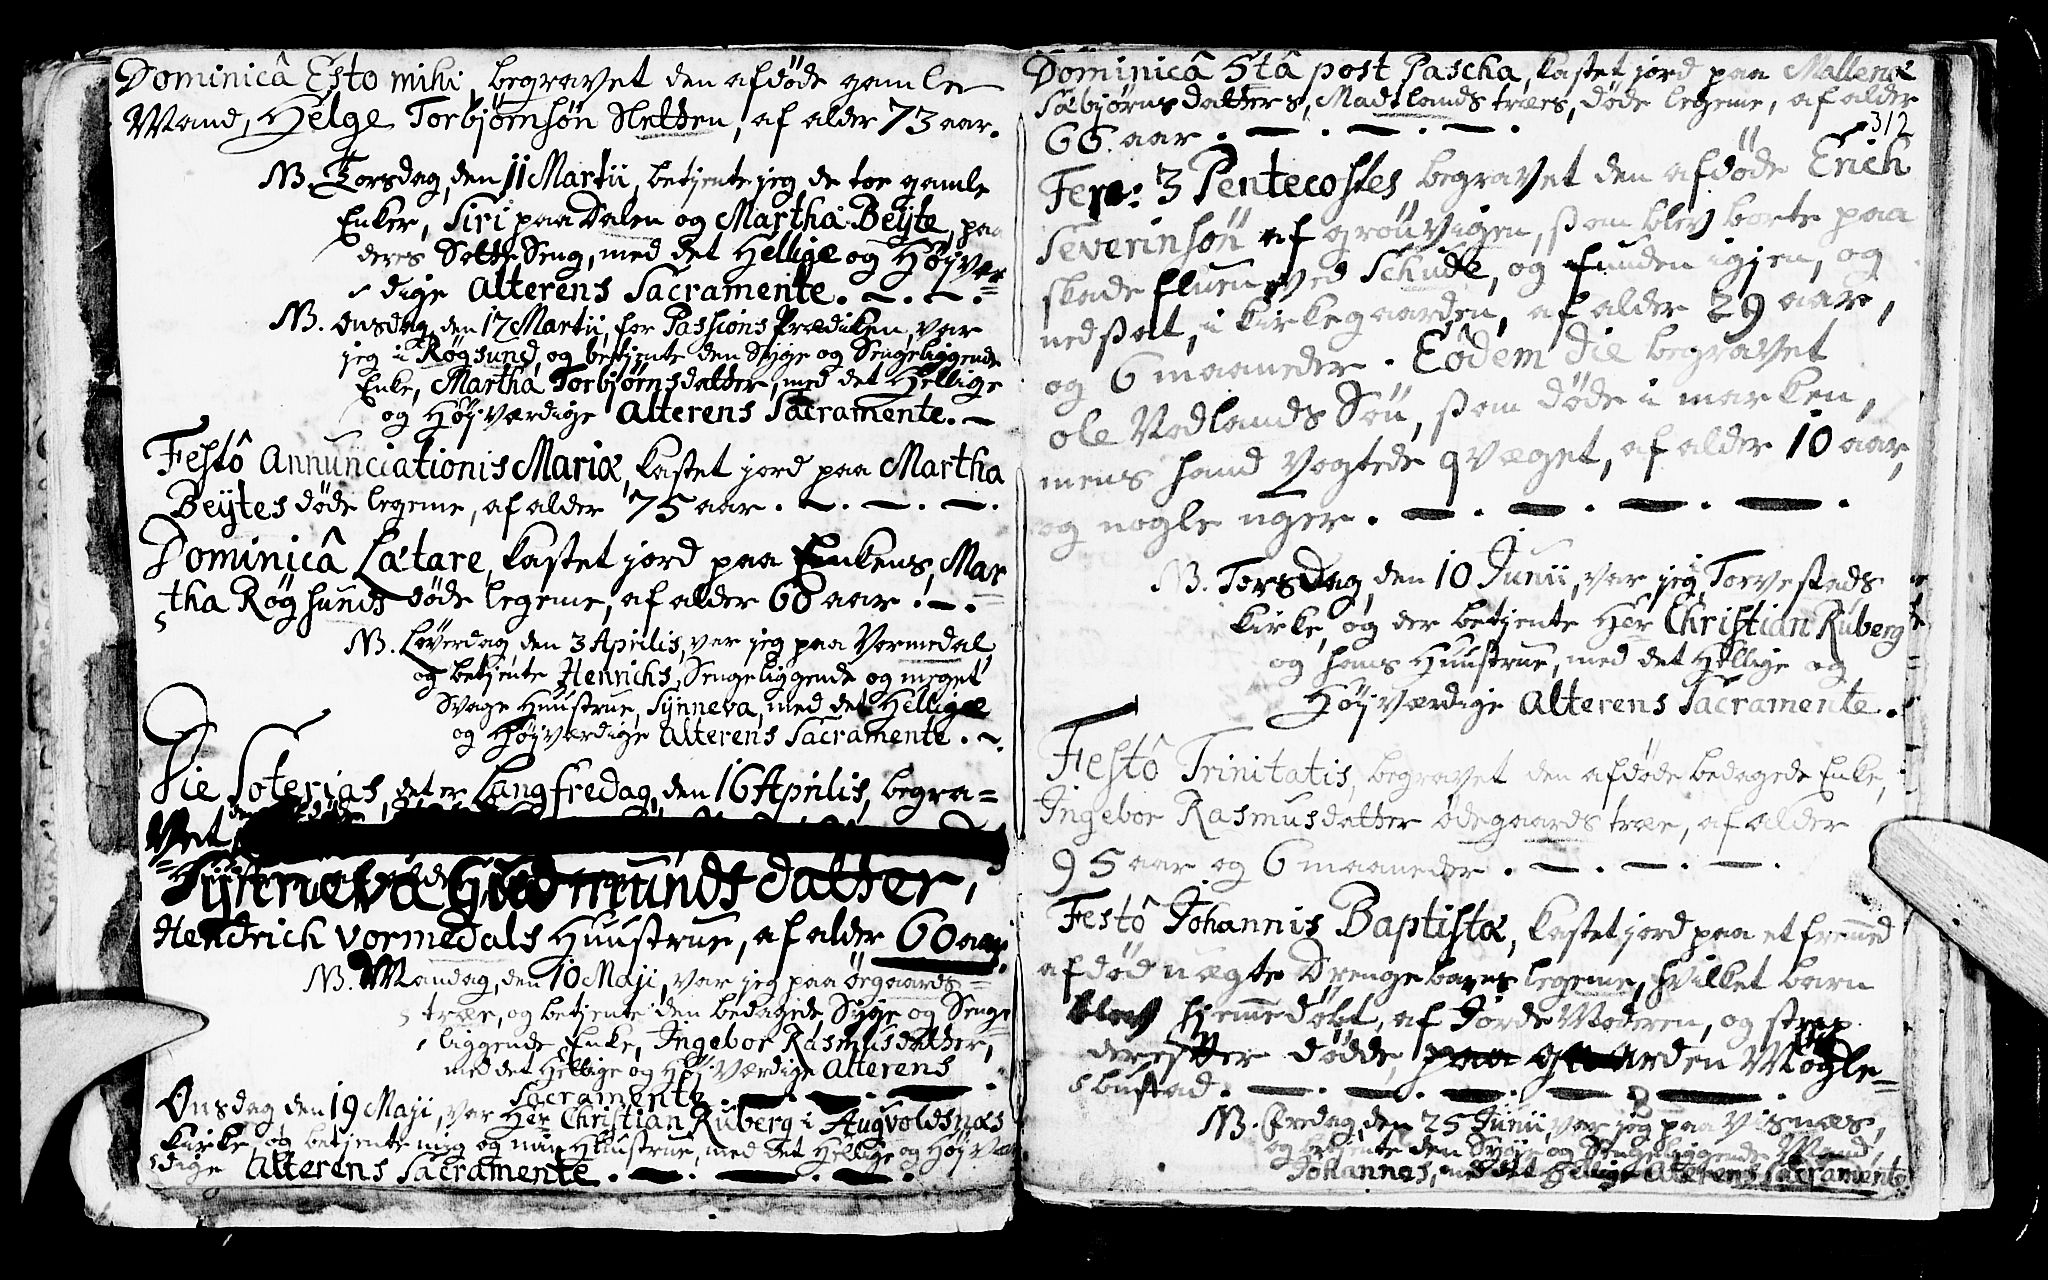 Dominicâ Esto mihi, begravet den afdöde gamle
Mand, Helge Torbjörnsön Sletten, af alder 73 aar.
NB. Torsdag, den 11 Martii, betjente jeg de toe gamle
Enker, Siri paa Dalen og Martha Beÿte, paa
deres Sotte Seng, med det Hellige og Höÿvær=
dige Alterens Sacramente. —. —.
NB. Onsdag, den 17 Martii, for Passions Prædiken, var
jeg i Røgsund, og betjente den Syge og Sengeliggende
Enke, Martha Torbjørnsdatter, med det Hellige
og Høÿværdige Alterens Sacramente. —
Festô Annunciationis Mariæ, kastet jord paa Martha
Beÿtes döde legeme, af alder 75 aar. —. —. —.
Dominicâ Lætare, kastet jord paa Enkens, Mar=
tha Røgsunds döde legeme, af alder 60 aar. —.
NB. Løverdag, den 3 Aprilis, var jeg paa Vormedal,
og betjente Henrichs, Sengeliggende og meget
Svage Huustrue, Sÿnneva, med det Hellige
og Høÿværdige Alterens Sacramente. —.
Die Soterias, det er Langfredag, den 16 Aprilis, begra=
vet den
Sÿnneva Gudmunds datter,
Hendrich Vormedals Huustrue, af alder 60 aar.
NB. Mandag, den 10 Maji, var jeg paa Øegaards=
træe, og betjente den bedagede Syge og Senge=
liggende Enke, Ingebor Rasmusdatter,
med det Hellige og Høÿværdige Alterens
Sacramente. —. —. —.
Onsdag den 19 Maji, var Her Christian Ruberg i Augvoldsnæs
Kirke, og betjente mig og min Huustrue, med det Hellige og Høÿvær
dige Alterens Sacramente. —. —. —.
Dominicâ 5tâ post Pascha, kastet jord paa Mallene
Sæbjørnsdatters, Madtlandstræes, døde legeme, af alder
66 aar. —. —. —.
312
Fer: 3 Pentecostes begravet den afdöde Erich
Severinsön af grönvigen, som blev borte paa
skade fluen ved Schude, og funden igjen, og
nedsat, i kirkegaarden, af alder 29 aar,
og 6 maaneder. Eôdem die begravet
ole Vodlands Sön, som döde i marken,
mens hand vogtede qvæget, af alder 10 aar,
og nogle uger. —. —. —. —.
NB. Torsdag, den 10 Junii, var jeg i Torvestads
kirke, og der betjente Her Christian Ruberg
og hans Huustrue, med det Hellige og
Høÿværdige Alterens Sacramente.
Festô Trinitatis, begravet den afdøde bedagede Enke,
Ingebor Rasmusdatter ødegaardstræe, af alder
95 aar og 6 maaneder. —. —. —.
Festô Johannis Baptistæ, kastet jord paa et fremmed
afdöd uægte Drengebarns legeme, hvilket barn
blev hjemmedöbt, af Jorde Moderen, og strax
derefter dödde, paa gaarden Mogle=
bustad. —. —. —. —. —.
NB. Fredag, den 25 Junii, var jeg paa Visnæs,
og betjente den Syge og Sengeliggende Mand,
Johannes, med det Hellige Alterens Sacramente